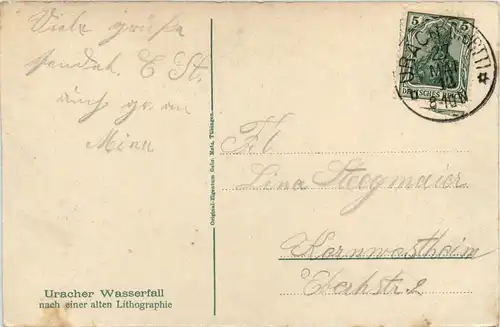 Viele Grüße
sendet. E St.
auch gr. an
Mina
Original-Eigentum Gebr. Metz, Tübingen.
5 5
DEUTSCHES REICH
URACH
8-10 V
Frl.
Lina Stegmaier
Kornwestheim
Uracher Wasserfall
nach einer alten Lithographie